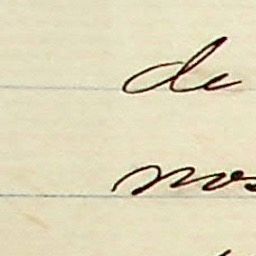 de
nos